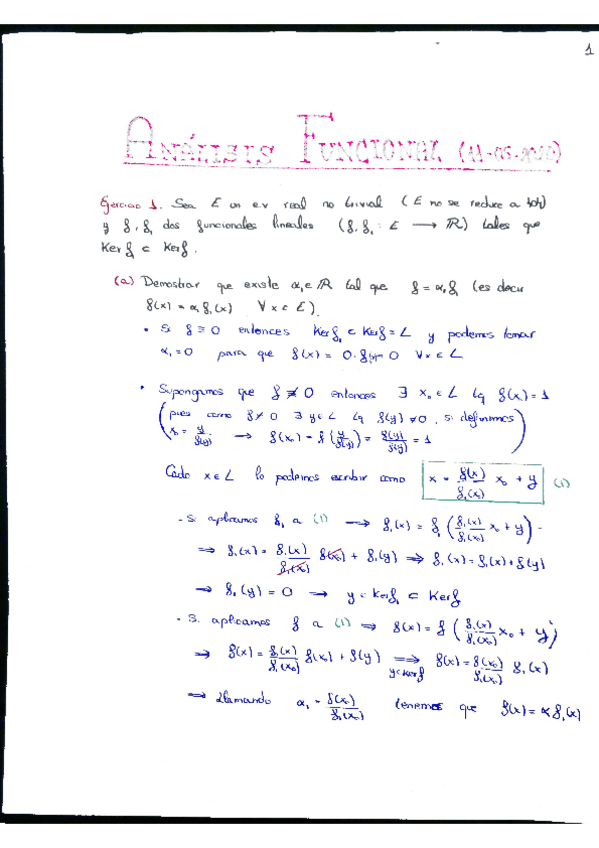 1
ANÁLISIS FUNCIONAL (11-05-2020)
Ejercicio 1. Sea E un e.v real no trivial (E no se reduce a {0})
y f, f₁ dos funcionales lineales (f, f₁ : E → ℝ) tales que
Ker f₁ ⊂ Ker f.
(a) Demostrar que existe α₁ ∈ ℝ tal que f = α₁f₁ (es decir
f(x) = α₁ f₁(x) ∀x ∈ E).
• Si f ≡ 0 entonces Ker f₁ ⊂ Ker f = L y podemos tomar
α₁ = 0 para que f(x) = 0·f₁(x) = 0 ∀x ∈ L
• Supongamos que f ≢ 0 entonces ∃ x₀ ∈ L tq f(x₀) = 1
(pues como f ≠ 0 ∃ y ∈ L tq f(y) ≠ 0, si definimos
x₀ = y/f(y) → f(x₀) = f(y/f(y)) = f(y)/f(y) = 1)
Cada x ∈ L lo podemos escribir como x = f₁(x)/f₁(x₀) x₀ + y (1)
- Si aplicamos f₁ a (1) → f₁(x) = f₁(f₁(x)/f₁(x₀) x₀ + y) -
⇒ f₁(x) = f₁(x)/f₁(x₀) f₁(x₀) + f₁(y) ⇒ f₁(x) = f₁(x) + f₁(y)
⇒ f₁(y) = 0 → y ∈ Ker f₁ ⊂ Ker f
- Si aplicamos f a (1) ⇒ f(x) = f(f₁(x)/f₁(x₀) x₀ + y)
⇒ f(x) = f₁(x)/f₁(x₀) f(x₀) + f(y) ⇒ y ∈ Ker f f(x) = f(x₀)/f₁(x₀) f₁(x)
⇒ Llamando α₁ = f(x₀)/f₁(x₀) tenemos que f(x) = α f₁(x)